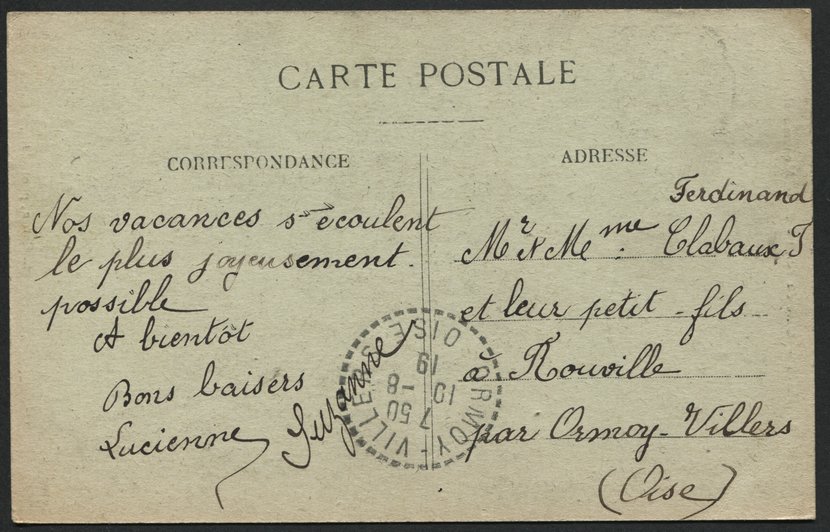 CARTE POSTALE
CORRESPONDANCE
Nos vacances s'écoulent
le plus joyeusement
possible
A bientôt
Bons baisers
Lucienne
Suzanne
ADRESSE
Ferdinand
Mr & Mme Clabaux
et leur petit-fils
à Rouville
par Ormoy-Villers
(Oise)
ORMOY-VILLERS OISE
7 50
10 - 8
19